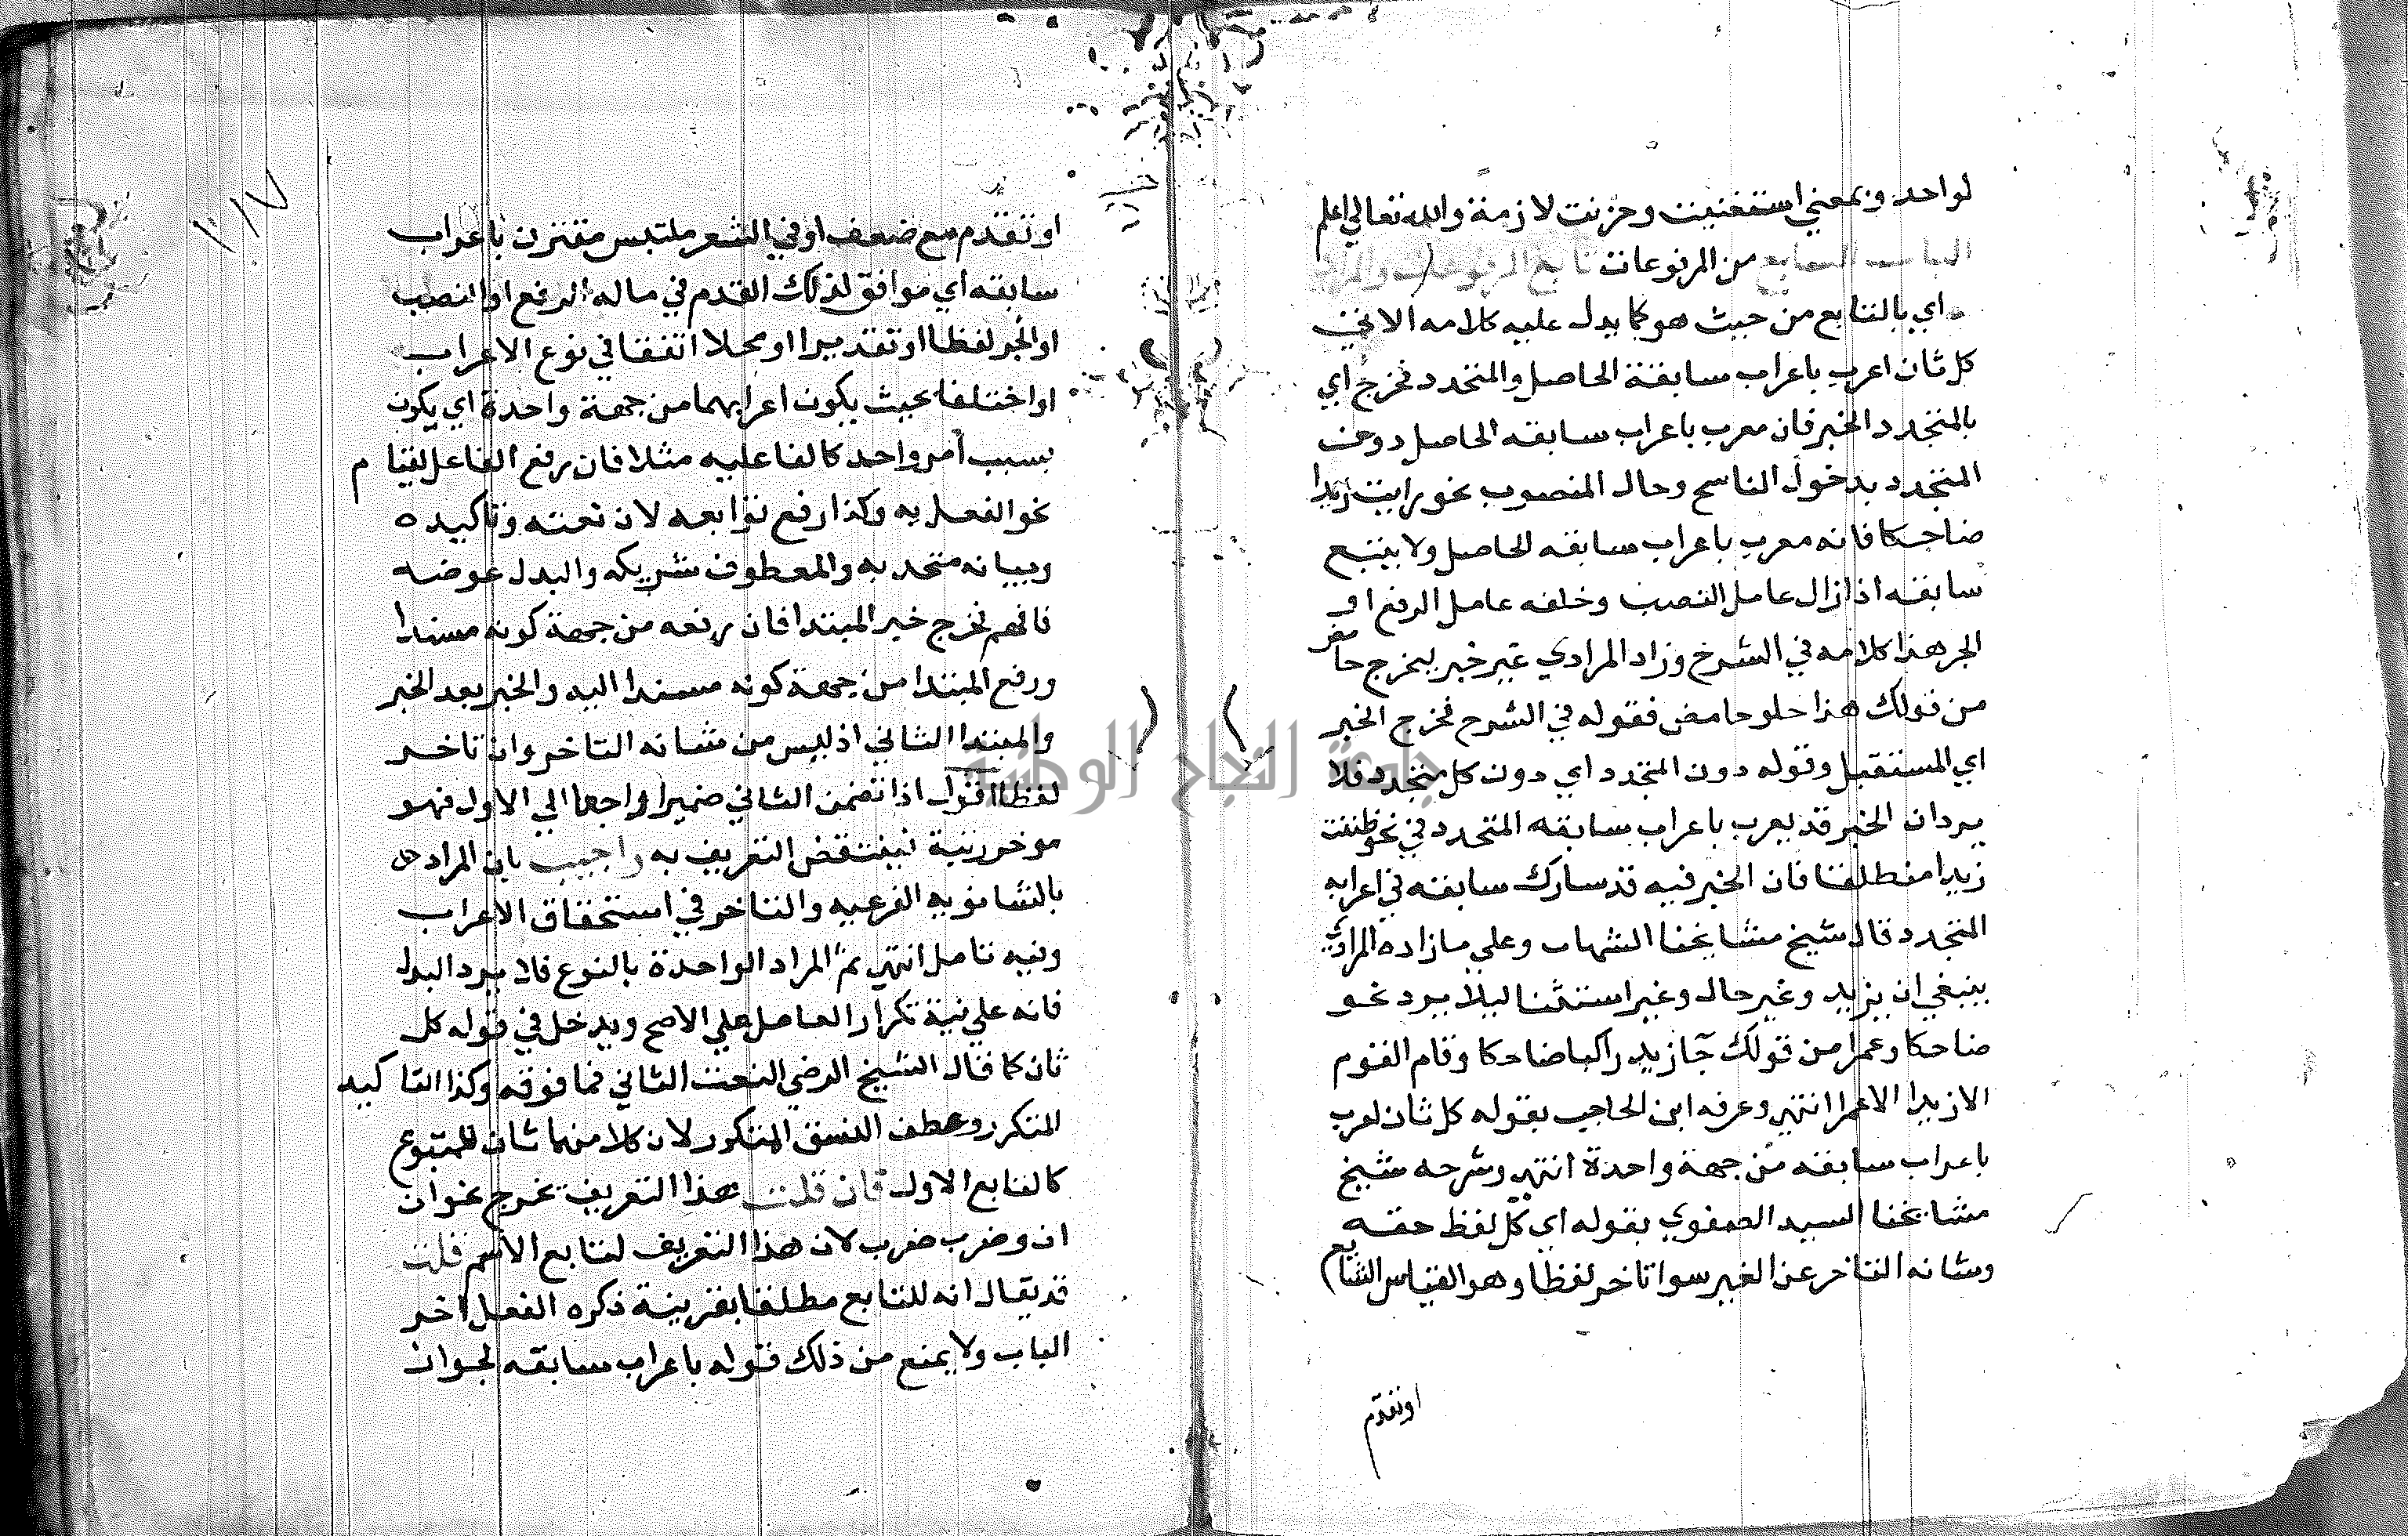 لواحد وبمعني استغنيت وحزنت لازمة والله تعالي اعلم
الباب السابع من المرفوعات تابع المرفوعات والمراد
اي بالتابع من حيث هو كما يدل عليه كلامه الاتي
كل ثان اعرب باعراب سابقة الحاصل والمتجدد فخرج اي
بالمتجدد الخبر فان معرب باعراب سابقه الحاصل دون
المتجدد بدخول الناسخ وحال المنصوب نحو رايت زيدا
ضاحكا فانه معرب باعراب سابقه الحاصل ولا يتبع
سابقه اذا زال عامل النصب وخلفه عامل الرفع او
الجر هذا كلامه في الشرح وزاد المرادي غير خبر ليخرج حامض
من قولك هذا حلو حامض فقوله في الشرح فخرج الخبر
اي المستقبل وقوله دون المتجدد اي دون كل متجدد فلا
يرد ان الخبر قد يعرب باعراب سابقه المتجدد في نحو ظننت
زيدا منطلقا فان الخبر فيه قد سارك سابقه في اعرابه
المتجدد قال شيخ مشايخنا الشهاب وعلي ما زاده المرادي
ينبغي ان يزيد وغير حال وغير استثنا ليلا يرد نحو
ضاحكا وعمرا من قولك جآ زيد راكبا ضاحكا وقام القوم
الا زيدا الا عمرا انتهي وعرفه ابن الحاجب بقوله كل ثان اعرب
باعراب سابقه من جهة واحدة انتهي وشرحه شيخ
مشايخنا السيد الصفوي بقوله اي كل لفظ حقه
وشانه التاخر عن الغير سوا تاخر لفظا وهو القياس الشايع
اوتقدم
١١٧
او تقدم مع ضعف او في الشعر ملتبس مقترن باعراب
سابقه اي موافق لذلك القدم في ماله الرفع او النصب
او الجر لفظا او تقديرا او محلا اتفقا في نوع الاعراب
او اختلفا بحيث يكون اعرابهما من جهة واحدة اي يكون
بسبب امر واحد كالفاعليه مثلا فان رفع الفاعل لقيام
نحو الفعل به وكذا رفع توابعه لان نعته وتاكيده
وبيانه متحد به والمعطوف شريكه والبدل عوضه
فافهم فخرج خبر المبتدا فان رفعه من جهة كونه مسندا
ورفع المبتدا من جهة كونه مسندا اليه والخبر بعد الخبر
والمبتدا الثاني اذ ليس من شانه التاخر وان تاخر
لفظا اقول اذا تضمن الثاني ضميرا راجعا الي الاول فهو
موخر رتبة فينتقض التعريف به واجيب بان المراد
بالثانويه الفرعيه والتاخر في استحقاق الاعراب
وفيه تامل انتهي ثم المراد الواحدة بالنوع فلا يرد البدل
فانه علي نية تكرار العامل علي الاصح ويدخل في قوله كل
ثان كما قال الشيخ الرضي النعت الثاني فما فوقه وكذا التاكيد
المتكرر وعطف النسق المتكرر لان كلا منهما ثان للمتبوع
كالتابع الاول فان قلت هذا التعريف يخرج نحو ان
ان وضرب ضرب لان هذا التعريف لتابع الاسم قلت
قد يقال انه للتابع مطلقا بقرينة ذكره الفعل اخر
الباب ولا يمنع من ذلك قوله باعراب سابقه لجواز
جامعة النجاح الوطنية